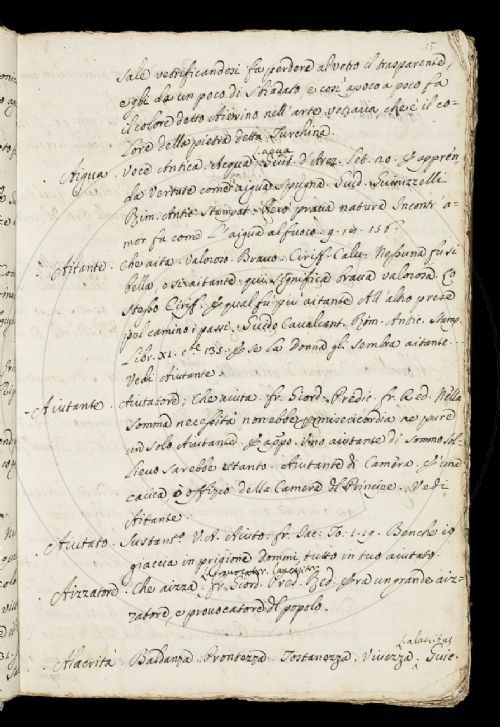 15
Sale vetrificandosi fa perdere al vetro il trasparente,
e gli dà un poco di sbiadato e così a poco a poco fa
il colore detto Aierino nell'arte vetraria che è il co-
lore della pietra detta Turchina.
Aigua. Voce Antica. Acqua. aqua Guit. d'Arez. Let. 10. E appren-
da Vertute come aigua spugna. Guid. Guinizzelli
Rim. Antic. Stampat. Reo prava natura Incontr' a-
mor fa come L'aigua al fuoco. 9. 10. 156.
Aitante. Che aita. Valoroso. Bravo. Ciriff. Calu. Nessuna fu sì
bella, e sì aitante: qui significa brava valorosa. Lo
stesso Ciriff. E qual fu più aitante All' altro prese
pel camino i passi. Guido Cavalcant. Rim. Antic. Stamp.
Libr. XI. 135. E se la Donna gl. sembra aitante.
Vedi Aiutante.
Aiutante. Aiutatore; Che aiuta. fr. Giord. Predic. fr. Red. Nella
somma necessità non ebbe misericordia ne pure
un solo Aiutante. E appo. Uno aiutante di sommo sol-
lievo sarebbe. Aiutante di Camera. È una
carica o offizio della Camera del Principe. Vedi
Aitante.
Aiutato. Sustant. V. A. Aiuto. fr. Iac. To. 1. 19. Benche io
giaccia in prigione dommi tutto in tuo aiutato.
Aizzatore. Che aizza. fr. Giord. Pred. Red. Era un grande aiz-
zatore, e provocatore del popolo.
Alacrità. Baldanza. Prontezza. Tostanezza. Vivezza. alacritas Guic.